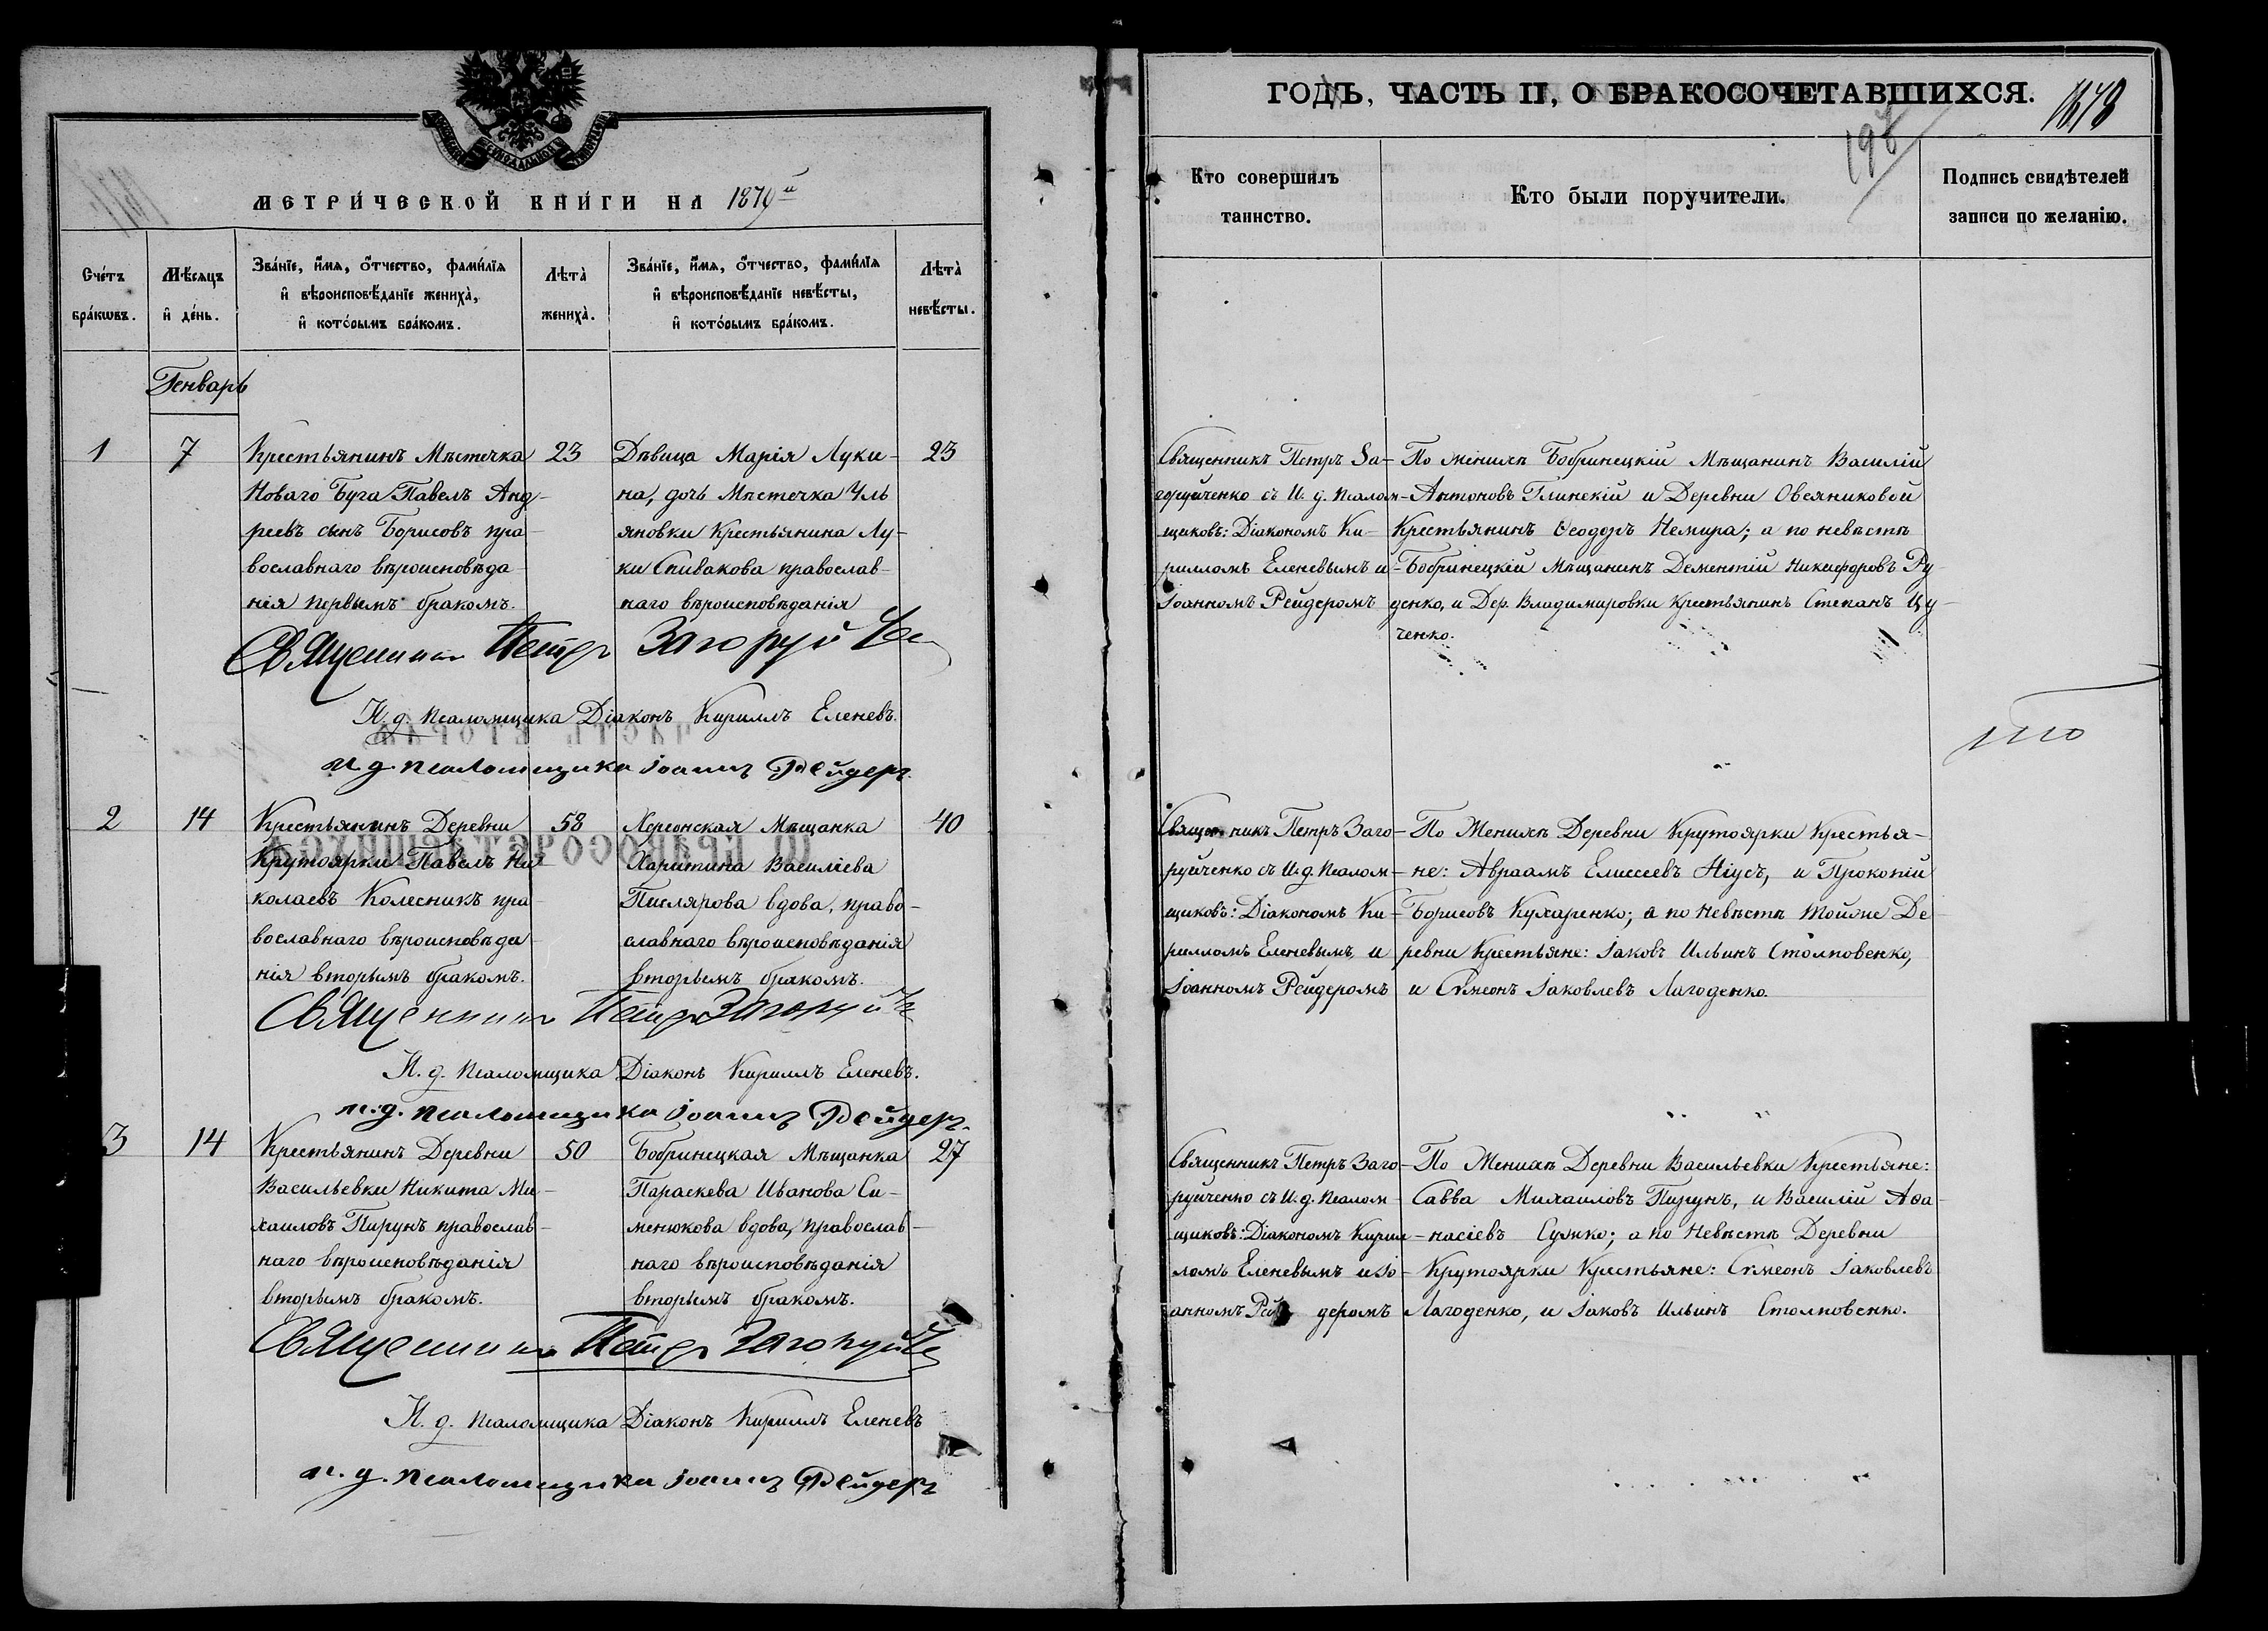 МЕТРИЧЕСКОЙ КНИГИ НА 1879й
Счетъ браковъ.
Мѣсяцъ и день.
Званіе, имя, отчество, фамилія
и вѣроисповѣданіе жениха,
и которымъ бракомъ.
Лѣта жениха.
Званіе, имя, отчество, фамилія
и вѣроисповѣданіе невѣсты,
и которымъ бракомъ.
Лѣта невѣсты.
Генварь
1
7
Крестьянинъ Мѣстечка
Новаго Буга Павелъ Анд-
реевъ сынъ Борисовъ пра-
вославнаго вѣроисповѣда-
нія первымъ бракомъ.
23
Дѣвица Марія Луки-
на, дочь Мѣстечка Уль
яновки Крестьянина Лу-
ки Спивакова православ-
наго вѣроисповѣданія
23
Священникъ Петръ Загоруйче
И. д. псаломщика Діаконъ Кириллъ Еленевъ.
и. д. псаломщика Іоаннъ Рейдеръ.
2
14
Крестьянинъ Деревни
Крутоярки Павелъ Ни-
колаевъ Колесникъ пра-
вославнаго вѣроисповѣда-
нія вторымъ бракомъ.
58
Херсонская Мѣщанка
Харитина Василіева
Пислярова вдова, право-
славнаго вѣроисповѣданія
вторымъ бракомъ.
40
Священникъ Петръ Загоруйче
И. д. псаломщика Діаконъ Кириллъ Еленевъ.
и. д. псаломщика Іоаннъ Рейдеръ.
3
14
Крестьянинъ Деревни
Васильевки Никита Ми-
хаиловъ Пирунъ православ-
наго вѣроисповѣданія
вторымъ бракомъ.
50
Бобринецкая Мѣщанка
Параскева Иванова Си-
менюкова вдова, православ-
наго вѣроисповѣданія
вторымъ бракомъ.
27
Священникъ Петръ Загоруйче
И. д. псаломщика Діаконъ Кириллъ Еленевъ
и. д. псаломщика Іоаннъ Рейдеръ
ГОДЪ, ЧАСТЬ II, О БРАКОСОЧЕТАВШИХСЯ.
Кто совершилъ
таинство.
Кто были поручители.
Подпись свидѣтелей
записи по желанію.
Священникъ Петръ За-
горуйченко съ И. д. псалом-
щиковъ: Діакономъ Ки-
рилломъ Еленевымъ и
Іоанномъ Рейдеромъ
По женихѣ Бобринецкій Мѣщанинъ Василій
Антоновъ Глинскій и Деревни Овсяниковой
Крестьянинъ Ѳеодоръ Немира; а по невѣстѣ
Бобринецкій Мѣщанинъ Дементій Никифоровъ Ру-
денко, и Дер. Владимировки Крестьянинъ Степанъ Цу-
ченко.
Священникъ Петръ Заго-
руйченко съ И. д. Псалом-
щиковъ: Діакономъ Ки-
рилломъ Еленевымъ и
Іоанномъ Рейдеромъ
По Женихѣ Деревни Крутоярки Крестья-
не: Авраамъ Елиссеевъ Ніусъ, и Прокопій
Борисовъ Кухаренко; а по Невѣстѣ тойже Де-
ревни Крестьяне: Іаковъ Ильинъ Столповенко,
и Сѵмеонъ Іаковлевъ Лагоденко.
Священникъ Петръ Заго-
руйченко съ И. д. Псалом-
щиковъ: Діакономъ Кирил-
ломъ Еленевымъ и Іо-
анномъ Рейдеромъ
По Женихѣ Деревни Васильевки Крестьяне:
Савва Михаиловъ Пирунъ, и Василій Аѳа-
насіевъ Сушко; а по Невѣстѣ Деревни
Крутоярки Крестьяне: Сѵмеонъ Іаковлевъ
Лагоденко, и Іаковъ Ильинъ Столповенко.